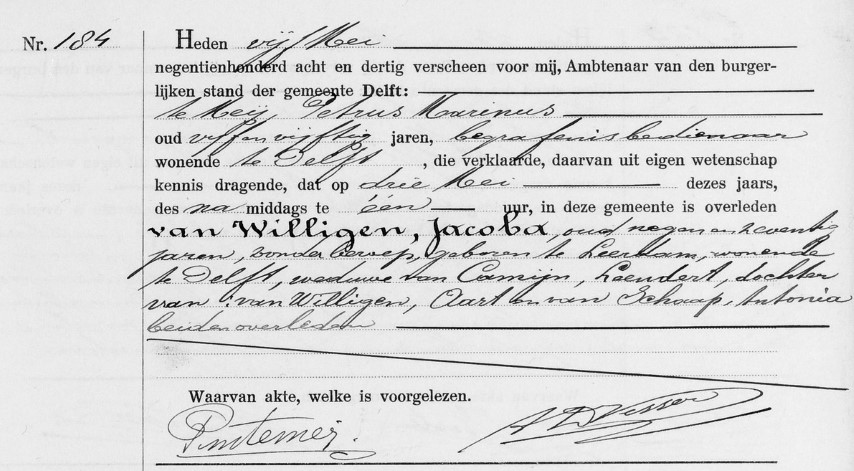 Nr. 184 Heden vijf Mei
negentienhonderd acht en dertig verscheen voor mij, Ambtenaar van den burger-
lijken stand der gemeente Delft:
te Meij, Petrus Marinus
oud vijfenvijftig jaren, begrafenisbedienaar
wonende te Delft, die verklaarde, daarvan uit eigen wetenschap
kennis dragende, dat op drie Mei dezes jaars,
des na middags te één uur, in deze gemeente is overleden
van Willigen, Jacoba, oud negen en zeventig
jaren, zonder beroep, geboren te Leerdam, wonende
te Delft, weduwe van Camijn, Leendert, dochter
van: van Willigen, Aart en van Schaap, Antonia
beiden overleden
Waarvan akte, welke is voorgelezen.
PMteMeij. Visser